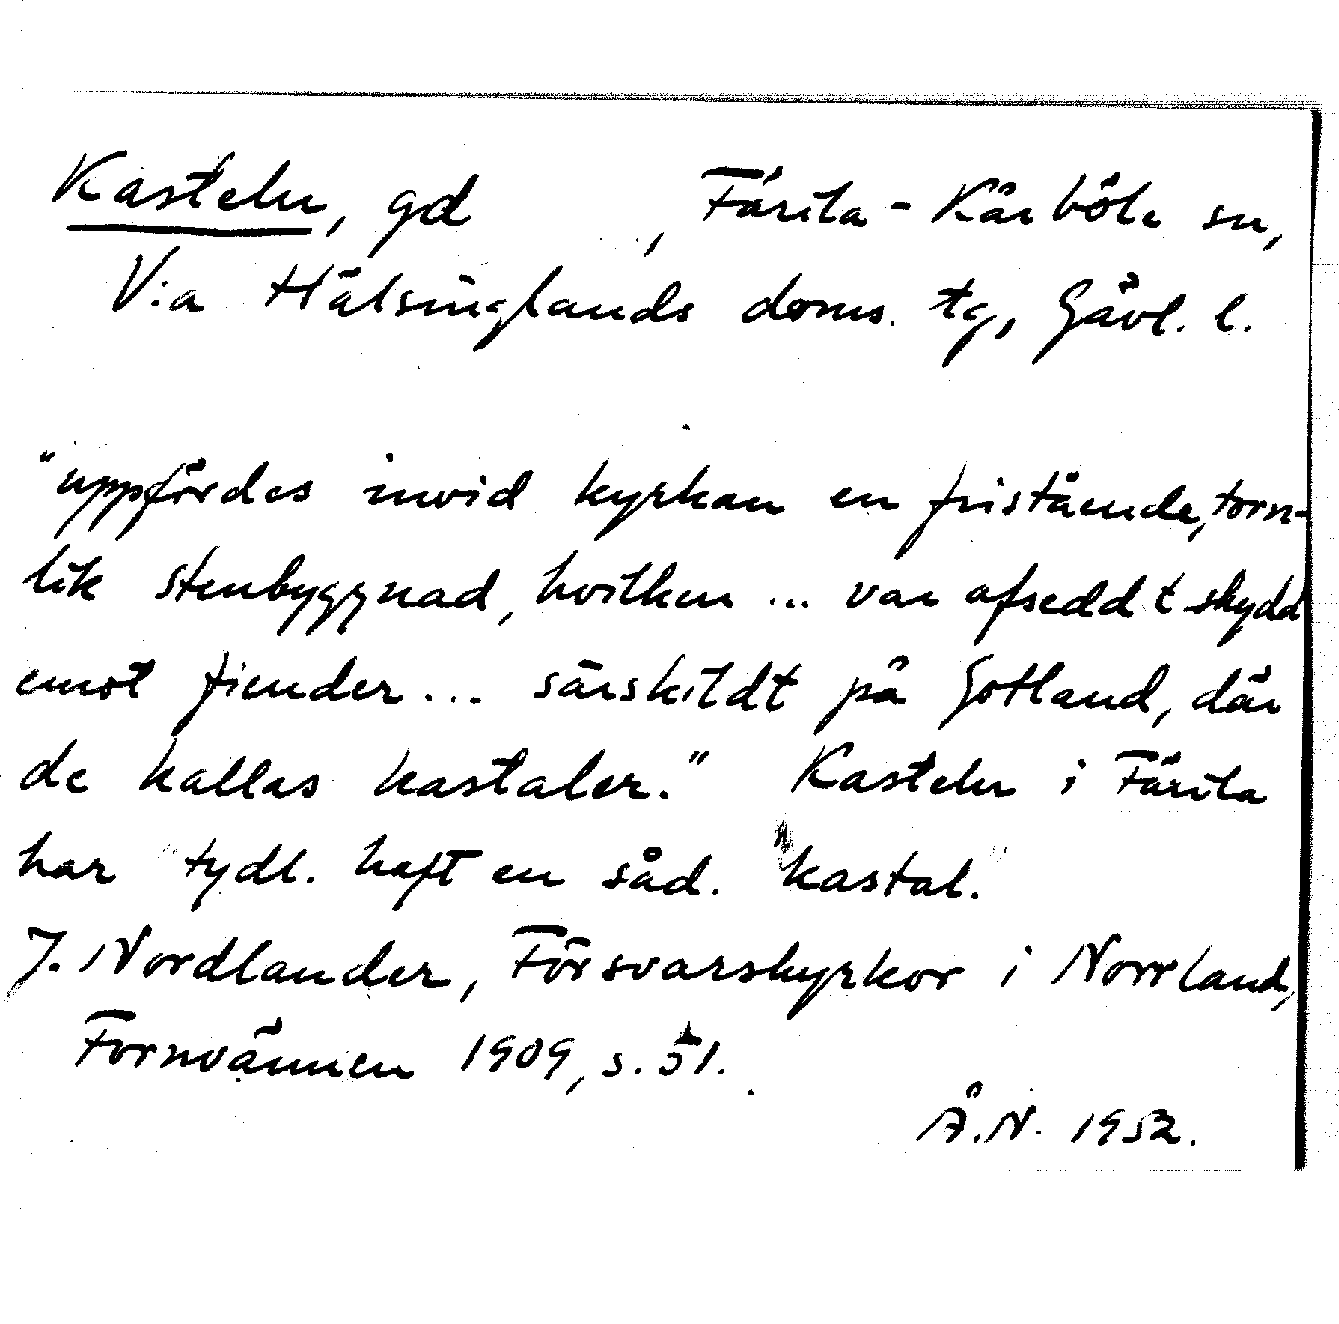 Kasteln, gd , Färila - Kårböle sn,
V:a Hälsinglands doms. tg, Gävl. l.
"uppfördes invid kyrkan en fristående, torn-
lik stenbyggnad, hvilken ... var afsedd t skydd
emot fiender ... särskildt på Gotland, där
de kallas kastaler." Kasteln i Färila
har tydl. haft en såd. kastal.
J. Nordlander, Försvarskyrkor i Norrland,
Fornvännen 1909, s. 51.
Å.N. 1952.